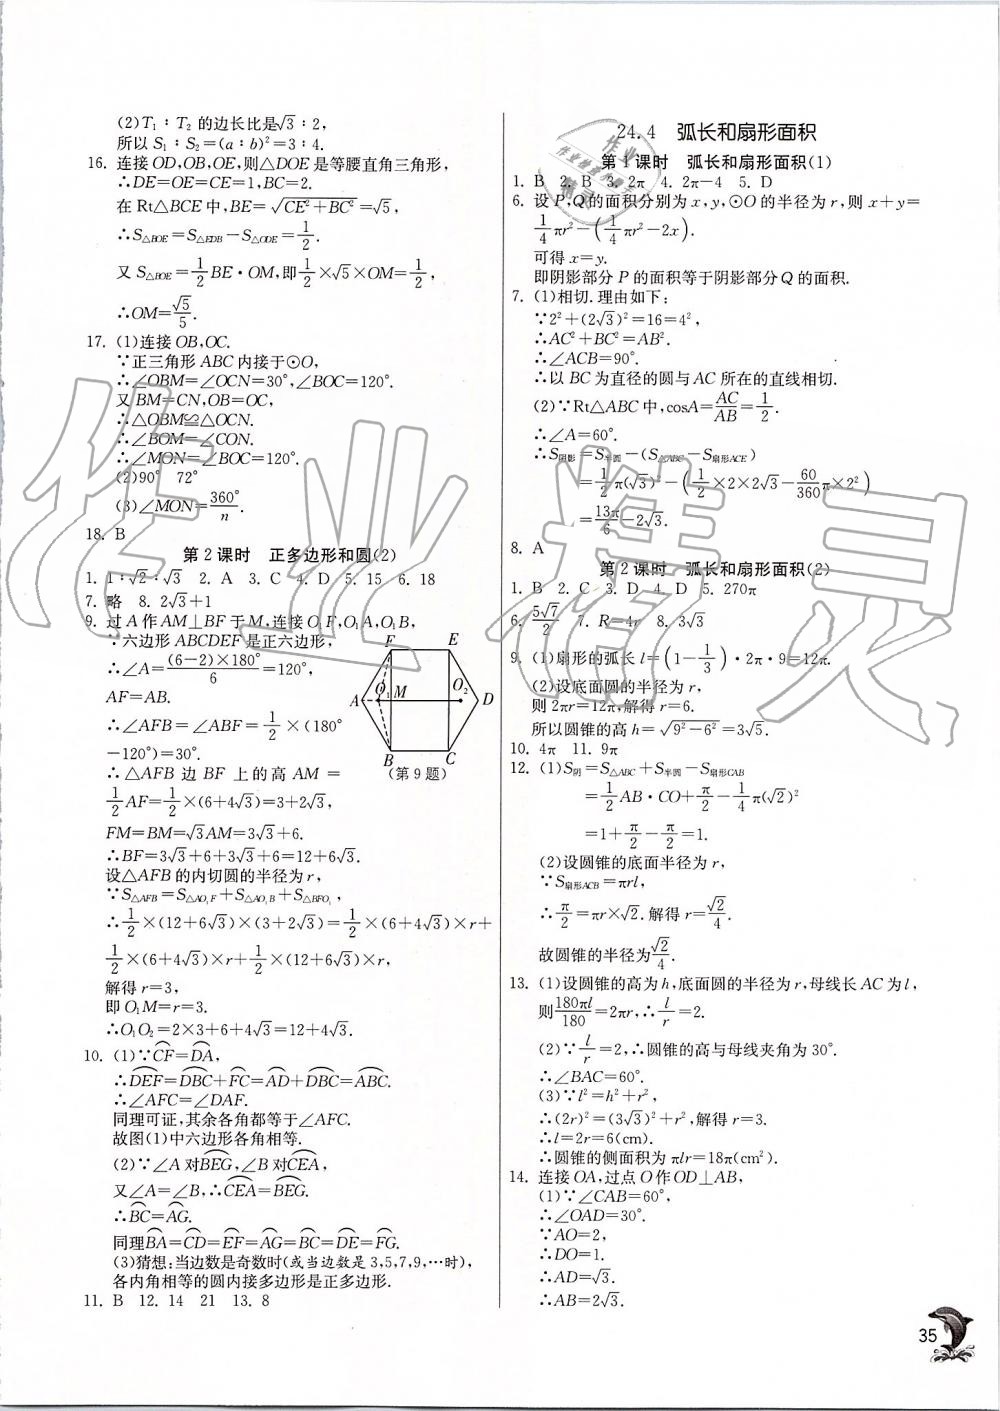 (2)T₁∶T₂ 的边长比是√3∶2,
所以 S₁∶S₂=(a∶b)²=3∶4.
16. 连接 OD,OB,OE,则△DOE 是等腰直角三角形,
∴DE=OE=CE=1,BC=2.
在 Rt△BCE 中,BE=√(CE²+BC²)=√5,
∴S△BOE=S△EDB-S△ODE=1/2.
又 S△BOE=1/2 BE·OM,即 1/2×√5×OM=1/2,
∴OM=√5/5.
17. (1)连接 OB,OC.
∵正三角形 ABC 内接于⊙O,
∴∠OBM=∠OCN=30°,∠BOC=120°.
又 BM=CN,OB=OC,
∴△OBM≌△OCN.
∴∠BOM=∠CON.
∴∠MON=∠BOC=120°.
(2)90° 72°
(3)∠MON=360°/n.
18. B
第 2 课时 正多边形和圆(2)
1. 1∶√2∶√3 2. A 3. C 4. D 5. 15 6. 18
7. 略 8. 2√3+1
9. 过 A 作 AM⊥BF 于 M,连接 O₁F,O₁A,O₁B,
∵六边形 ABCDEF 是正六边形,
∴∠A=(6-2)×180°/6=120°,
AF=AB.
∴∠AFB=∠ABF=1/2×(180°
-120°)=30°.
∴△AFB 边 BF 上的高 AM=
1/2 AF=1/2×(6+4√3)=3+2√3,
FM=BM=√3AM=3√3+6.
∴BF=3√3+6+3√3+6=12+6√3.
设△AFB 的内切圆的半径为 r,
∵S△AFB=S△AO₁F+S△AO₁B+S△BFO₁,
∴1/2×(12+6√3)×(3+2√3)=1/2×(6+4√3)×r+
1/2×(6+4√3)×r+1/2×(12+6√3)×r,
解得 r=3,
即 O₁M=r=3,
∴O₁O₂=2×3+6+4√3=12+4√3.
F
E
A
O₁
M
O₂
D
B
C
(第 9 题)
10. (1)∵C͡F=D͡A,
∴D͡EF=D͡BC+F͡C=A͡D+D͡BC=A͡BC.
∴∠AFC=∠DAF.
同理可证,其余各角都等于∠AFC.
故图(1)中六边形各角相等.
(2)∵∠A 对B͡EG,∠B 对C͡EA,
又∠A=∠B,∴C͡EA=B͡EG.
∴B͡C=A͡G.
同理B͡A=C͡D=E͡F=A͡G=B͡C=D͡E=F͡G.
(3)猜想:当边数是奇数时(或当边数是 3,5,7,9,…时),
各内角相等的圆内接多边形是正多边形.
11. B 12. 14 21 13. 8
24.4 弧长和扇形面积
第 1 课时 弧长和扇形面积(1)
1. B 2. B 3. 2π 4. 2π-4 5. D
6. 设 P,Q 的面积分别为 x,y,⊙O 的半径为 r,则 x+y=
1/4 πr²-(1/4 πr²-2x).
可得 x=y.
即阴影部分 P 的面积等于阴影部分 Q 的面积.
7. (1)相切.理由如下:
∵2²+(2√3)²=16=4²,
∴AC²+BC²=AB².
∴∠ACB=90°.
∴以 BC 为直径的圆与 AC 所在的直线相切.
(2)∵Rt△ABC 中,cosA=AC/AB=1/2.
∴∠A=60°.
∴S阴影=S半圆-(S△ABC-S扇形ACE)
=1/2 π(√3)²-(1/2×2×2√3-60/360 π×2²)
=13π/6-2√3.
8. A
第 2 课时 弧长和扇形面积(2)
1. B 2. C 3. D 4. D 5. 270π
6. 5√7/2 7. R=4r 8. 3√3
9. (1)扇形的弧长 l=(1-1/3)·2π·9=12π.
(2)设底面圆的半径为 r,
则 2πr=12π,解得 r=6.
所以圆锥的高 h=√(9²-6²)=3√5.
10. 4π 11. 9π
12. (1)S阴=S△ABC+S半圆-S扇形CAB
=1/2 AB·CO+π/2-1/4 π(√2)²
=1+π/2-π/2=1.
(2)设圆锥的底面半径为 r,
∵S扇形ACB=πrl,
∴π/2=πr×√2.解得 r=√2/4.
故圆锥的半径为√2/4.
13. (1)设圆锥的高为 h,底面圆的半径为 r,母线长 AC 为 l,
则180πl/180=2πr,∴l/r=2.
(2)∵l/r=2,∴圆锥的高与母线夹角为 30°.
∴∠BAC=60°.
(3)∵l²=h²+r²,
∴(2r)²=(3√3)²+r²,解得 r=3.
∴l=2r=6(cm).
∴圆锥的侧面积为 πlr=18π(cm²).
14. 连接 OA,过点 O 作 OD⊥AB,
(1)∵∠CAB=60°,
∴∠OAD=30°.
∵AO=2,
∴DO=1.
∴AD=√3.
∴AB=2√3.
35
作业精灵